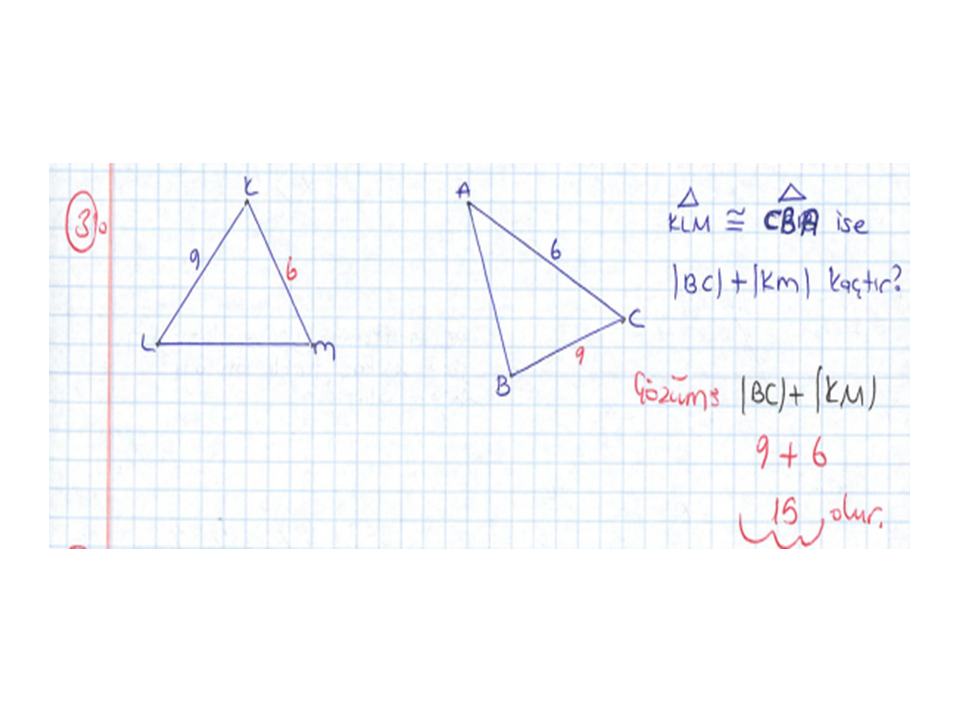 3)
K
9
6
L
M
A
6
C
9
B
KLM ≅ CBA ise
|BC|+|KM| kaçtır?
Çözüm: |BC|+|KM|
9+6
15 olur.